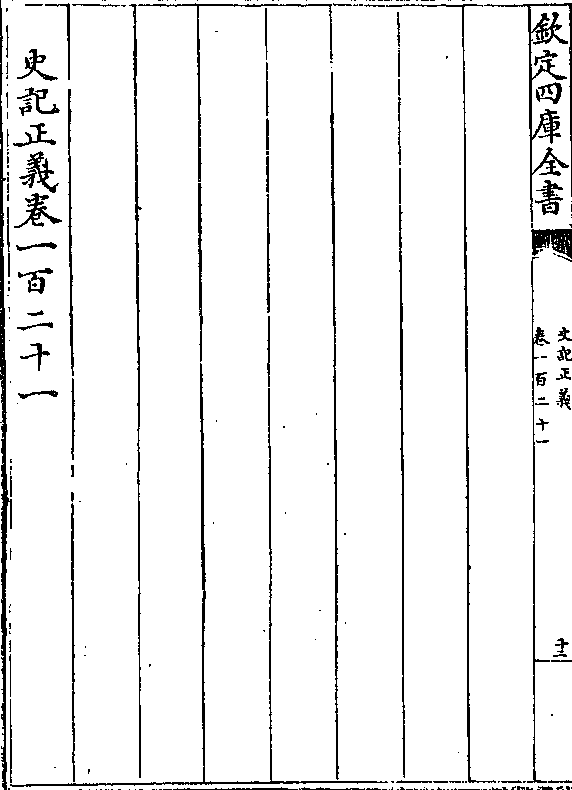 欽定四庫全書
史記正義
卷一百二十一
十二
史記正義卷一百二十一